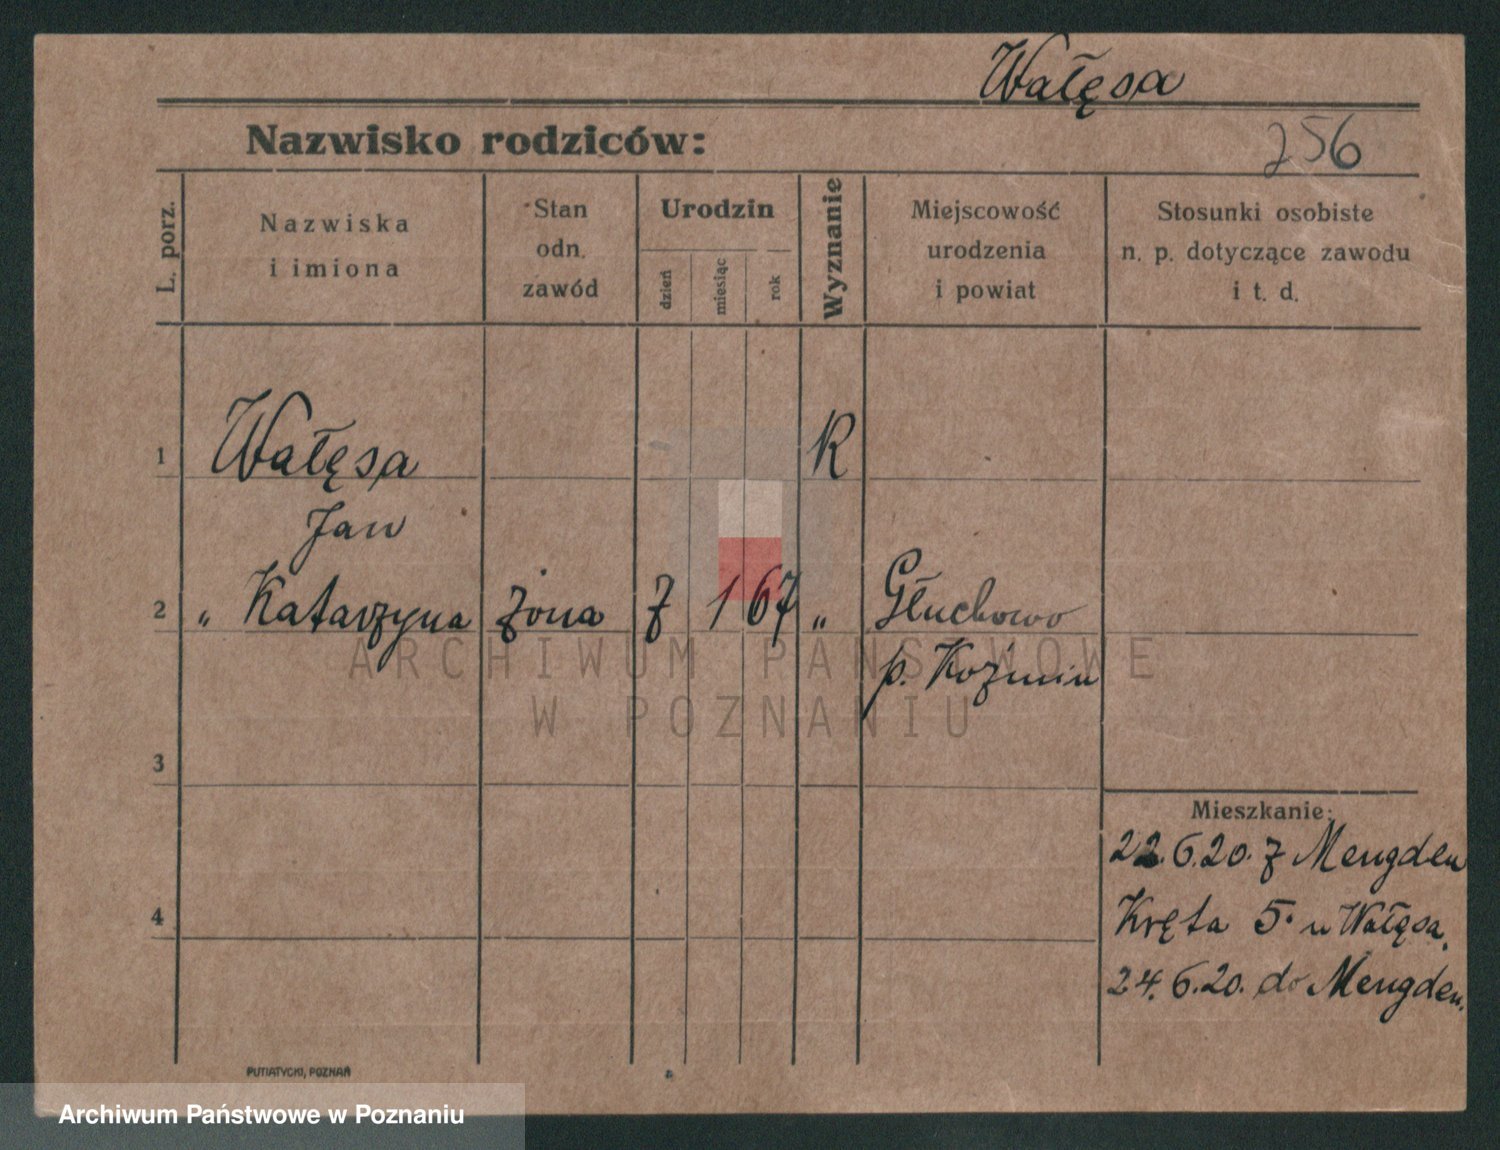 Wałęsa
Nazwisko rodziców:
256
L. porz.
Nazwiska
i imiona
Stan
odn.
zawód
Urodzin
dzień
miesiąc
rok
Wyznanie
Miejscowość
urodzenia
i powiat
Stosunki osobiste
n. p. dotyczące zawodu
i t. d.
1 Wałęsa R
Jan
2 „ Katarzyna żona 7 1 67 „ Głuchowo
p. Koźmin
ARCHIWUM PAŃSTWOWE
W POZNANIU
3
Mieszkanie:
22.6.20. z Mengden
4 Kręta 5. u Wałęsa.
24.6.20. do Mengden.
PUTIATYCKI, POZNAŃ
Archiwum Państwowe w Poznaniu